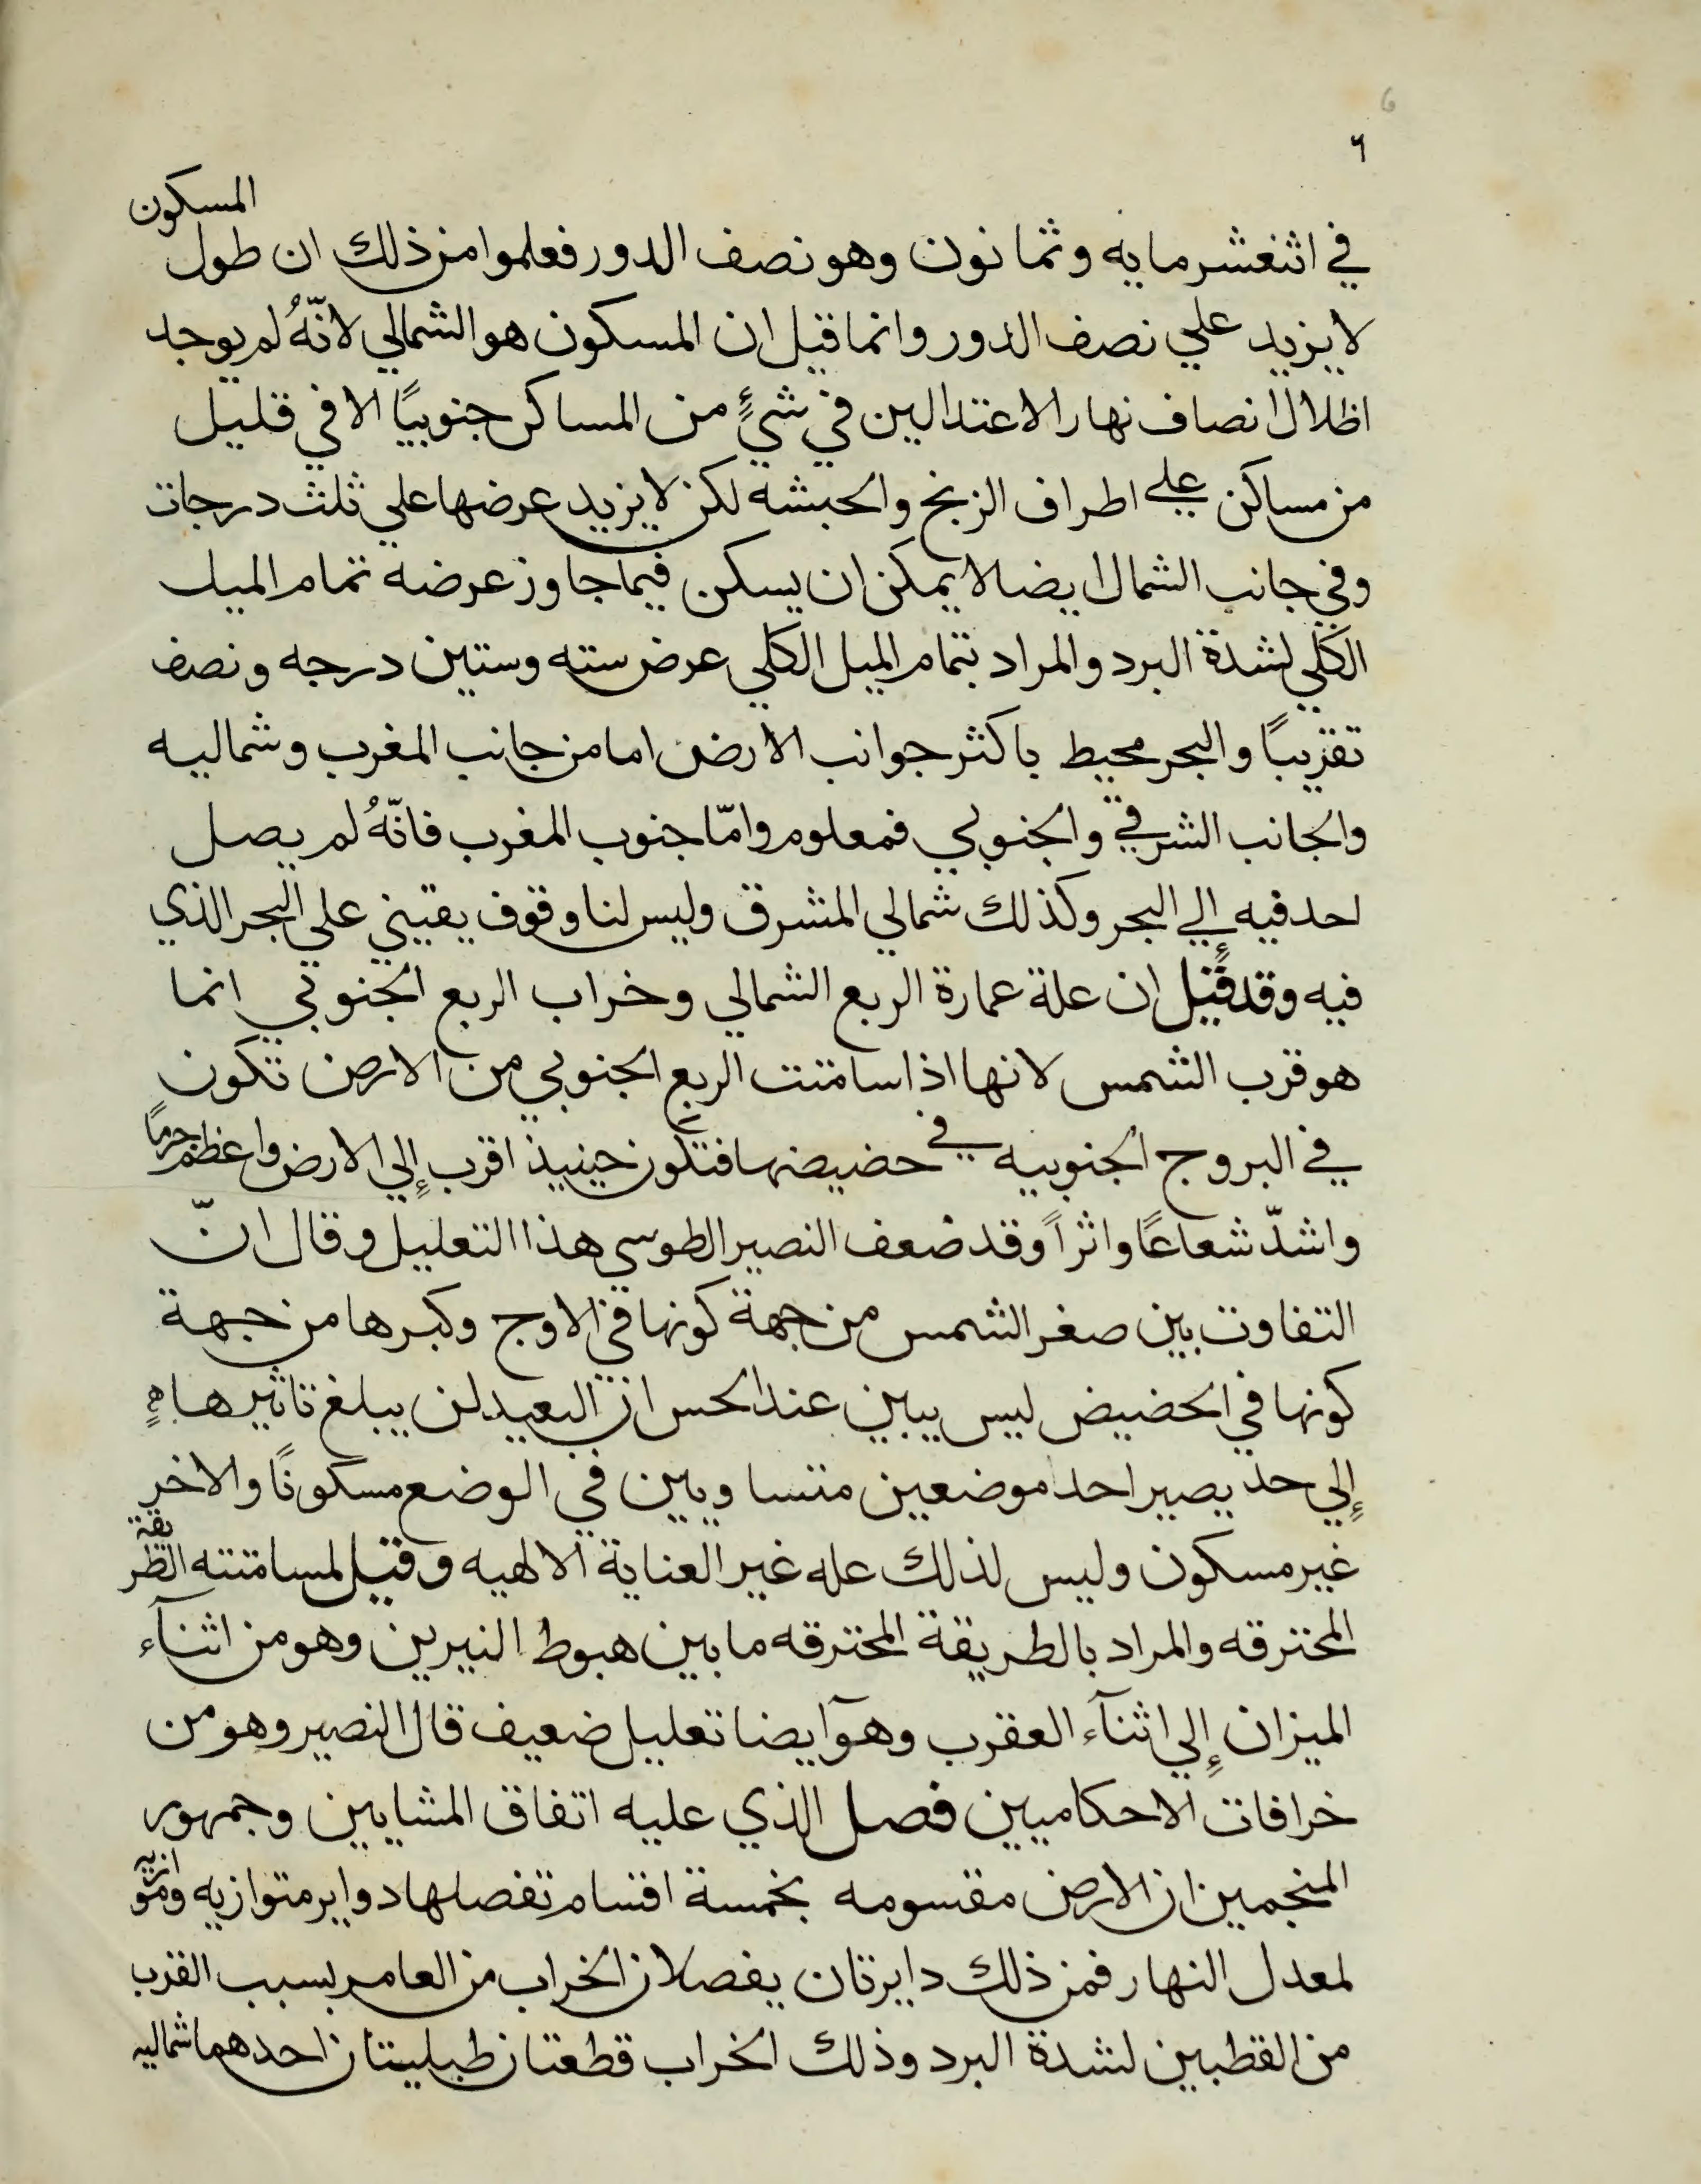 6
٦
في اثنعشر مايه وثمانون وهو نصف الدور فعلموا من ذلك ان طول المسكون
لا يزيد علي نصف الدور وانما قيل ان المسكون هو الشمالي لانّهُ لم يوجد
اظلال انصاف نهار الاعتدالين في شئٍ من المساكن جنوبيًا الا في قليل
من مساكن علي اطراف الزنج والحبشه لكن لا يزيد عرضها علي ثلث درجات
وفي جانب الشمال ايضا لا يمكن ان يسكن فيما جاوز عرضه تمام الميل
الكلي لشدة البرد والمراد بتمام الميل الكلي عرض سته وستين درجه ونصف
تقريبًا والبحر محيط باكثر جوانب الارض اما من جانب المغرب وشماليه
والجانب الشرقي والجنوبي فمعلوم وامّا جنوب المغرب فانّهُ لم يصل
احد فيه إلي البحر وكذلك شمالي المشرق وليس لنا وقوف يقيني علي البحر الذي
فيه وقد قيل ان علة عمارة الربع الشمالي وخراب الربع الجنوبي انما
هو قرب الشمس لانها اذا سامتت الربع الجنوبي من الارض تكون
في البروج الجنوبيه في حضيضها فتكون حينيذ اقرب إلي الارض واعظم جرمًا
واشدّ شعاعًا واثراً وقد ضعف النصير الطوسي هذا التعليل وقال انّ
التفاوت بين صغر الشمس من جهة كونها في الاوج وكبرها من جهة
كونها في الحضيض ليس يبين عند الحس ان البعيد لن يبلغ تاثيرها
إلي حد يصير احد موضعين متساويين في الوضع مسكونًا والاخر
غير مسكون وليس لذلك عله غير العناية الالهيه وقيل لمسامتته الطريقة
المحترقه والمراد بالطريقة المحترقه ما بين هبوط النيرين وهو من اثنآء
الميزان إلي اثنآء العقرب وهو ايضا تعليل ضعيف قال النصير وهو من
خرافات الاحكاميين فصل الذي عليه اتفاق المشايين وجمهور
المنجمين ان الارض مقسومه بخمسة اقسام تفصلها دواير متوازيه وموازيه
لمعدل النهار فمن ذلك دايرتان يفصلان الخراب من العامر بسبب القرب
من القطبين لشدة البرد وذلك الخراب قطعتان طبليتان احدهما شماليه